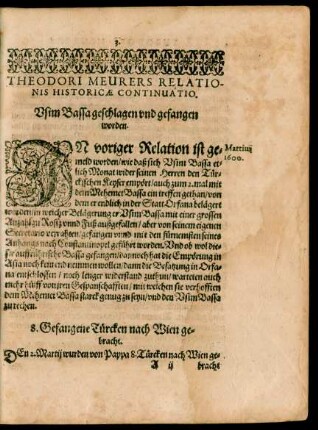 3.
THEODORI MEURERS RELATIO-
NIS HISTORICÆ CONTINUATIO.
Vsim Bassa geschlagen vnd gefangen
worden.
IN voriger Relation ist ge-
melt worden / wie daß sich Vsim Bassa et-
lich Monat wider seinen Herren den Tür-
ckischen Keyser empört / auch zum 2. mal mit
dem Mehemet Bassa ein treffen gethan / von
dem er endlich in der Statt Orfana belägert
worden / in welcher Belägerung er Vsim Bassa mit einer grossen
Anzahl zu Roß vnnd Fuß außgefallen / aber von seinem eignen
Secretario verrahten / gefangen vnnd mit den fürnemsten seines
Anhangs nach Constantinopel geführt worden. Vnd ob wol die-
ser auffrührische Bassa gefangen / so noch hat die Empörung in
Asia noch kein end nemmen wollen / dann die Besatzung in Orfa-
na entschlossen / noch länger widerstand zuthun / warteten auch
mehr hülff von jren Gespanschafften / mit welchen sie verhofften
dem Mehemet Bassa starck genug zu seyn / vnd den Vsim Bassa
zu rechen.
Martius
1600.
8. Gefangene Türcken nach Wien ge-
bracht.
DEn 2. Martij wurden von Pappa 8. Türcken nach Wien ge-
A ij bracht